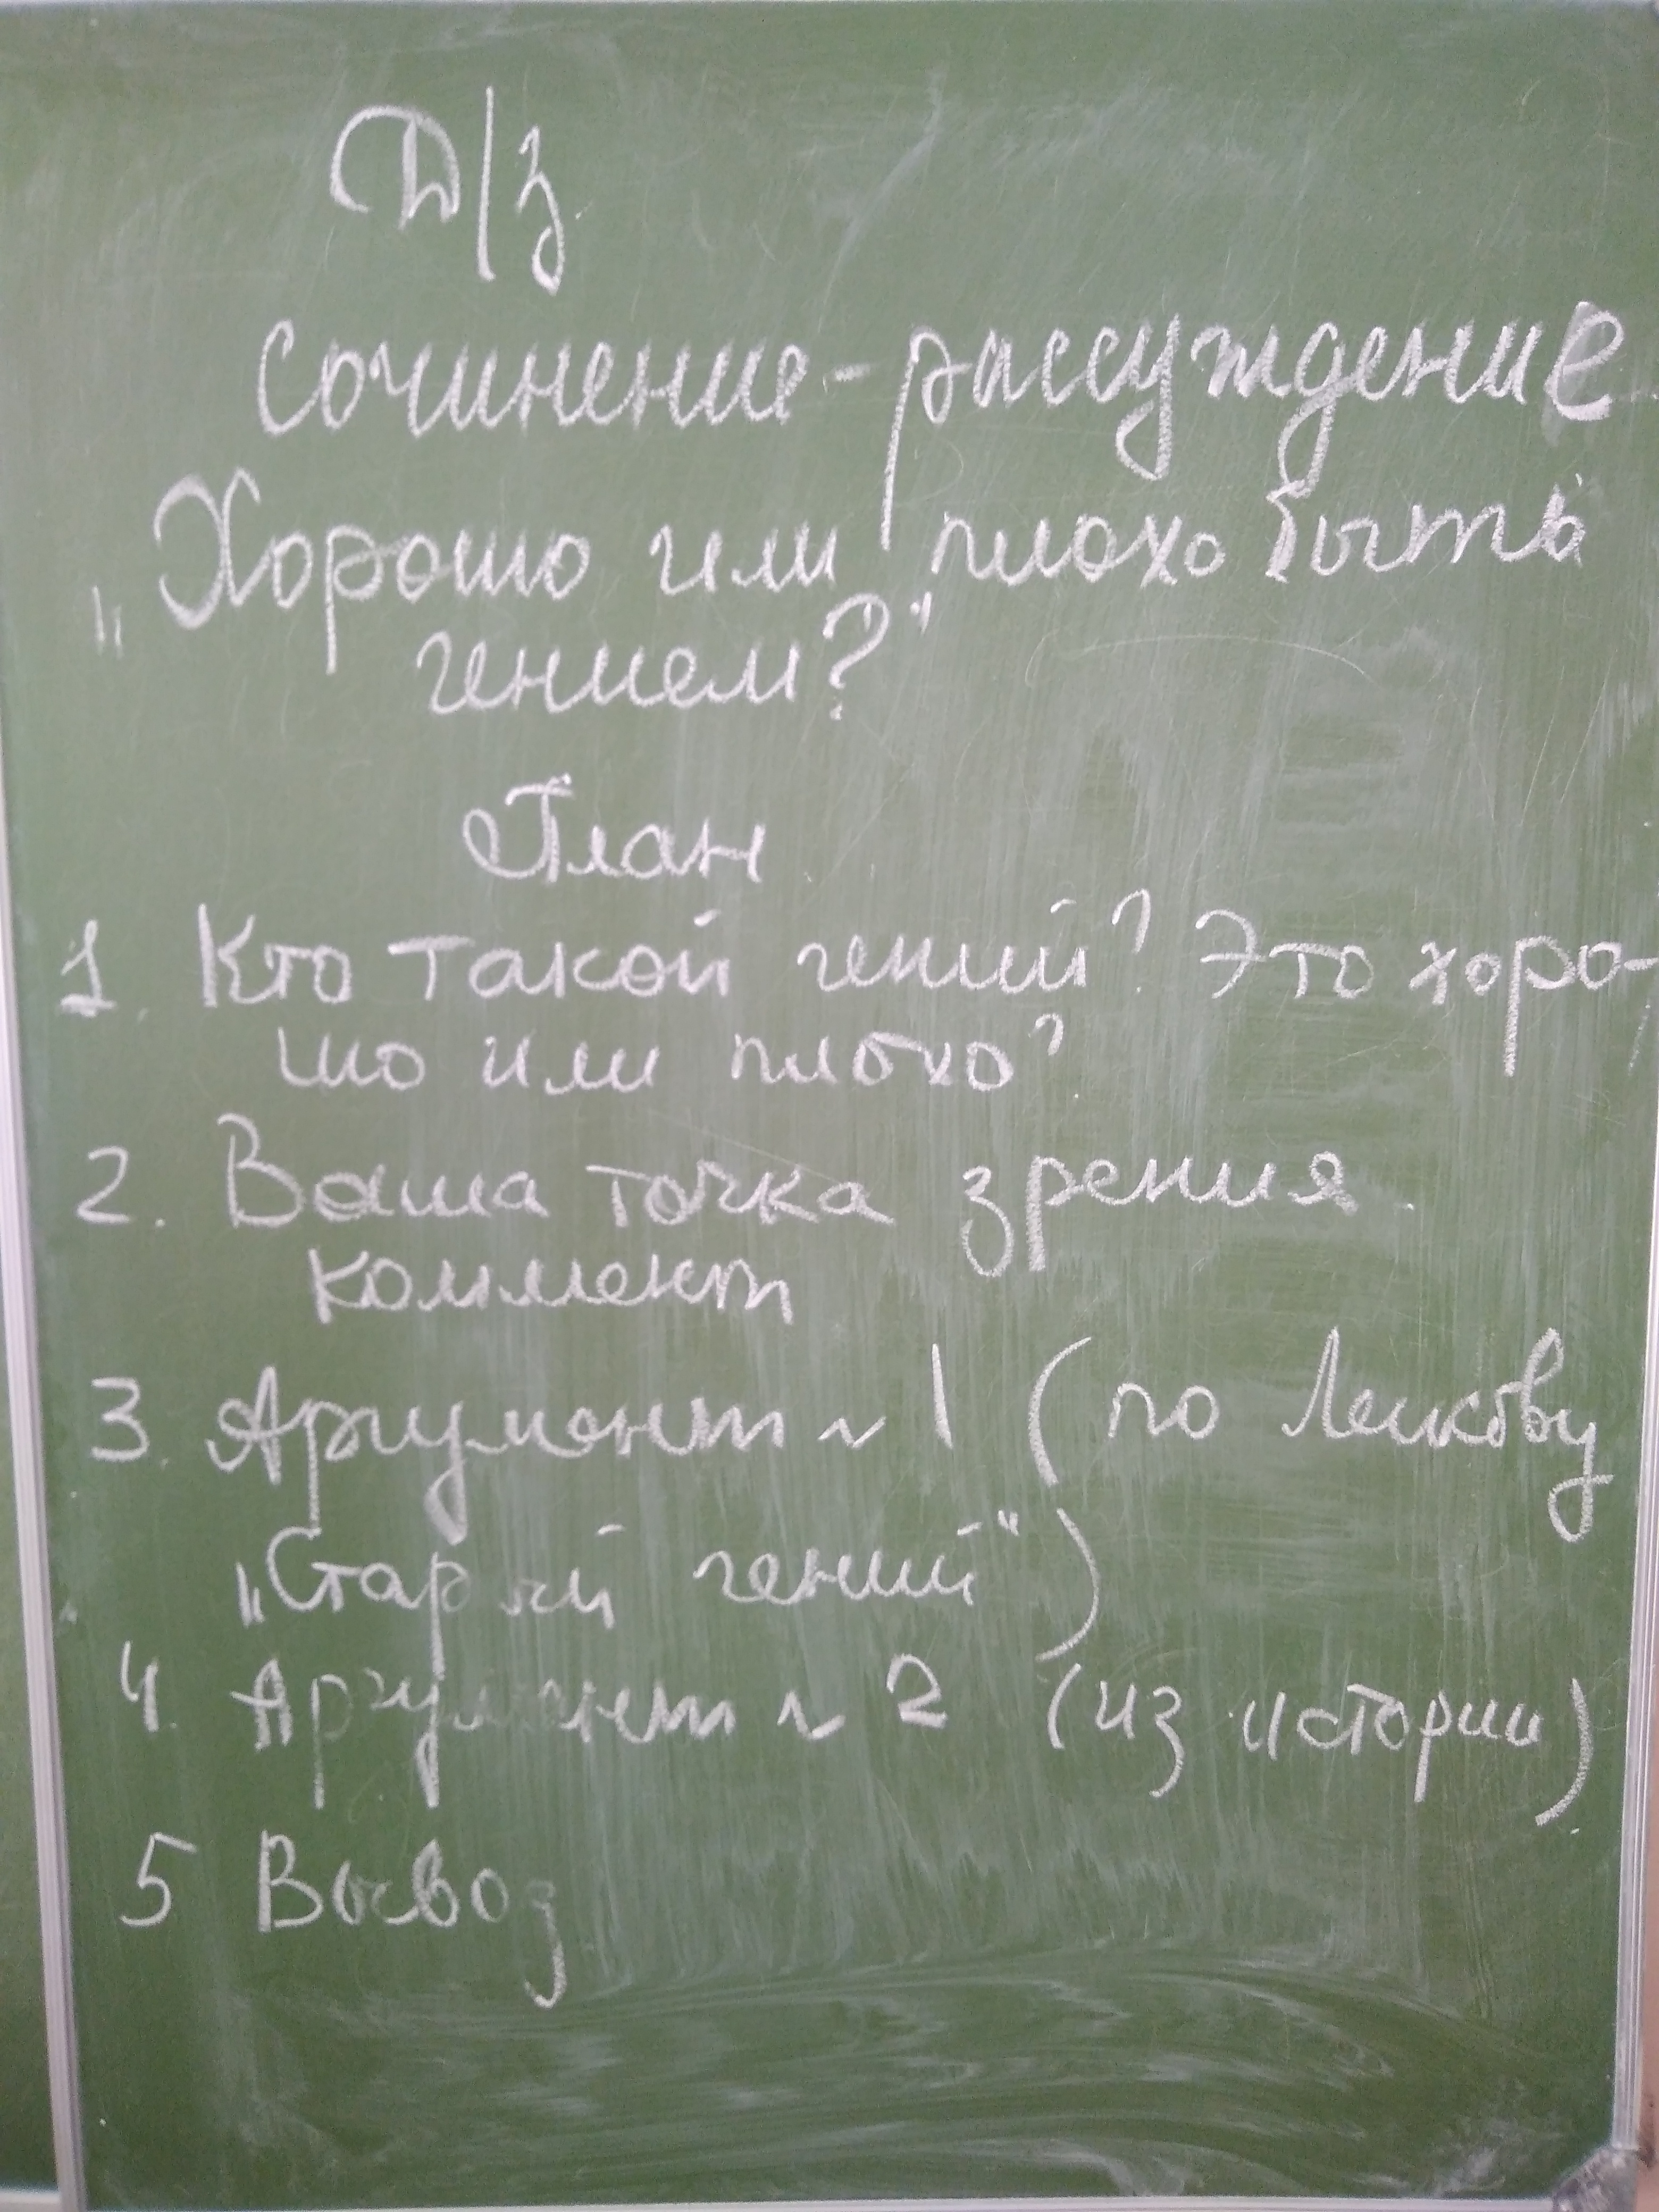 Д/з
Сочинение-рассуждение
„Хорошо или плохо быть
гением?“
План
1. Кто такой гений? Это хоро-
шо или плохо?
2. Ваша точка зрения.
коммент
3. Аргумент ~ 1 (по Лескову
„Старый гений“)
4. Аргумент ~ 2 (из истории)
5 Вывод